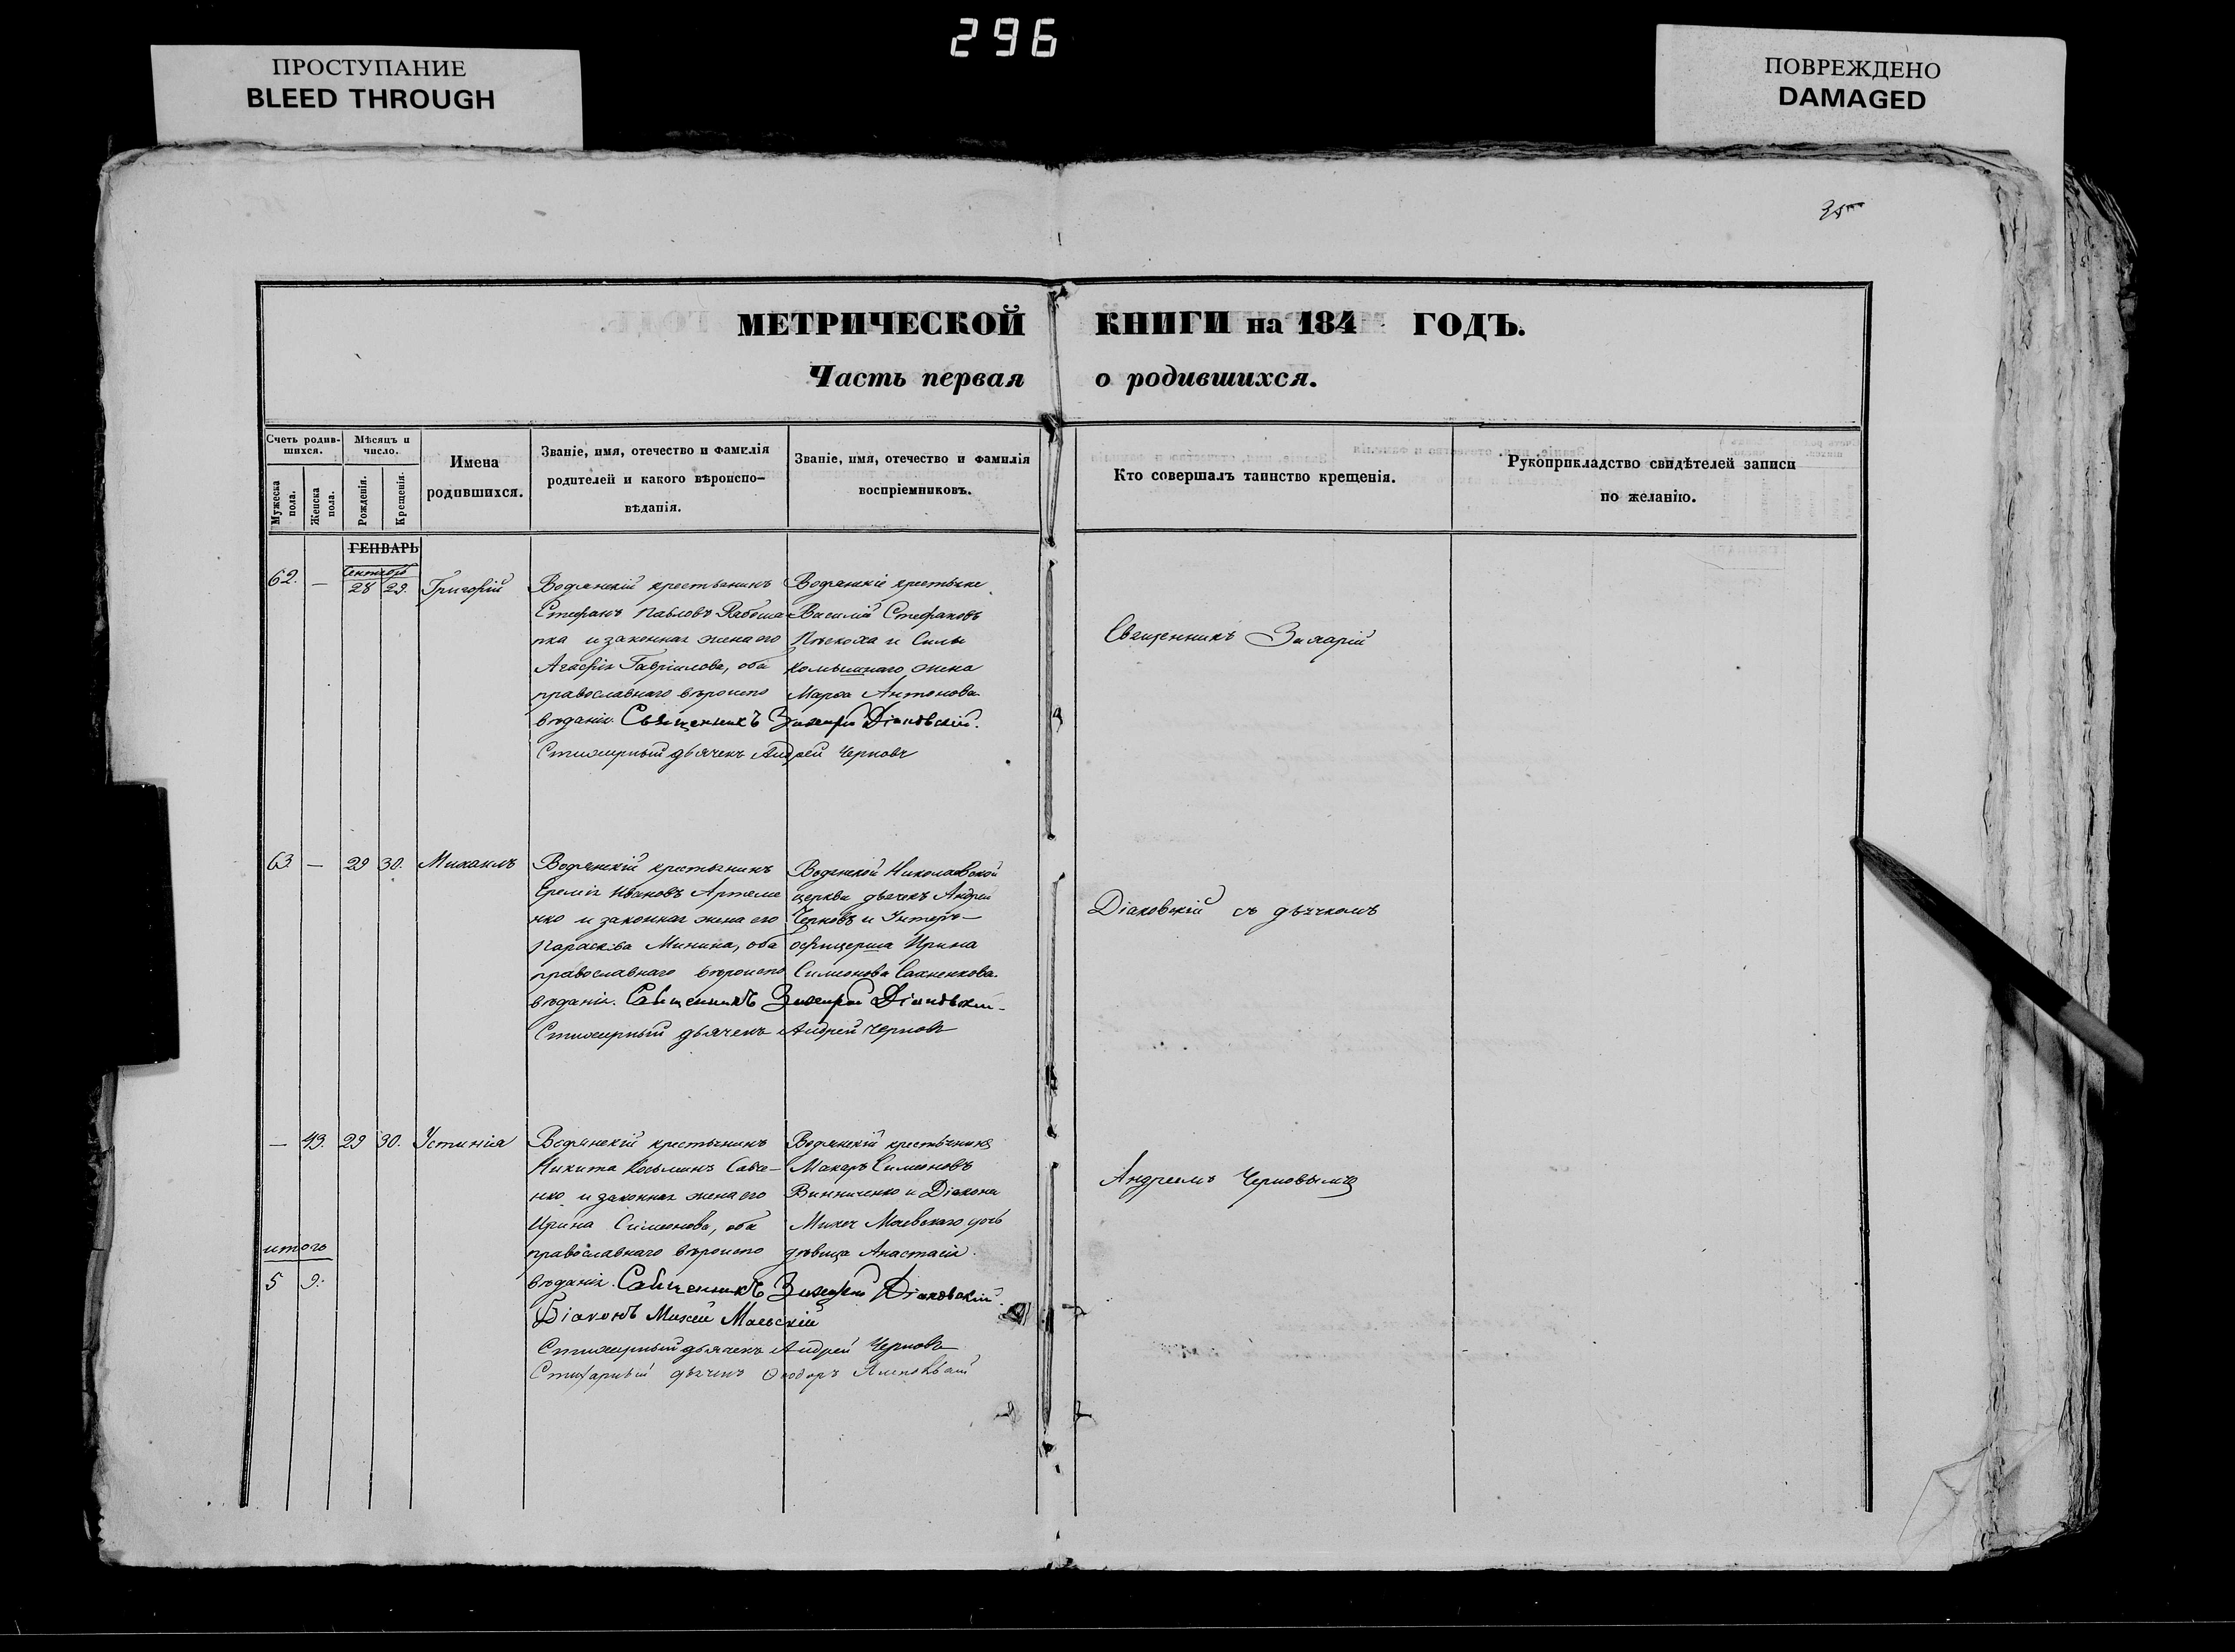 296
ПРОСТУПАНИЕ
BLEED THROUGH
ПОВРЕЖДЕНО
DAMAGED
МЕТРИЧЕСКОЙ КНИГИ на 184 ГОДЪ.
Часть первая о родившихся.
Счетъ родив-
шихся.
Мужеска
пола.
Женска
пола.
Мѣсяцъ и
число.
Рожденія.
Крещенія.
Имена
родившихся.
Званіе, имя, отечество и фамилія
родителей и какого вѣроиспо-
вѣданія.
Званіе, имя, отечество и фамилія
воспріемниковъ.
Кто совершалъ таинство крещенія.
Рукоприкладство свидѣтелей записи
по желанію.
ГЕНВАРЬ
Сентябрь
62. — 28 29. Григорій
Водянскій крестьянинъ
Стефанъ Павловъ
и законная жена его
Агафія Гавріилова, оба
православнаго вѣроиспо
вѣданія. Священникъ Захарій Діаковскій.
Стихарный дьячекъ Андрей Черновъ
Водянскіе крестьяне
Василій Стефановъ
и Силы
жена
Марѳа Антонова
Священникъ Захарій
63. — 29 30. Михаилъ
Водянскій крестьянинъ
Еремія Ивановъ Артеме
нко и законная жена его
Параскева Минина, оба
православнаго вѣроиспо
вѣданія. Священникъ Захарій Діаковскій
Стихарный дьячекъ Андрей Черновъ
Водянской Николаевской
церкви дьячекъ Андрей
Черновъ и Унтеръ-
офицерша Ирина
Симеонова Сахненкова.
Діаковскій съ дьячкомъ
— 49. 29 30. Устинія
Водянскій крестьянинъ
Никита Косьминъ Савче-
нко и законная жена его
Ирина Симеонова, оба
православнаго вѣроиспо
вѣданія. Священникъ Захарій Діаковскій.
Діаконъ Михей Маевскій
Стихарный дьячекъ Андрей Черновъ
Стихарный дьячекъ Ѳеодоръ
Водянскій крестьянинъ
Макаръ Симеоновъ
Винниченко и Діакона
Михея Маевскаго дочь
дѣвица Анастасія.
Андреемъ Черновымъ
итого
5 9.